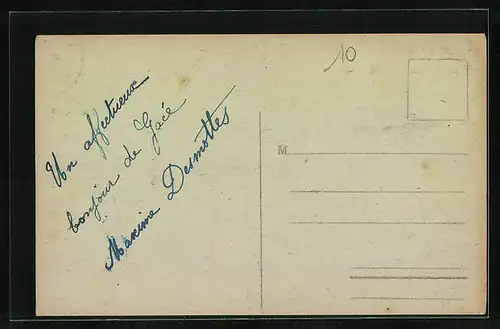 10
Un affectueux
bonjour de Gacé
Maxime Desmottes
M